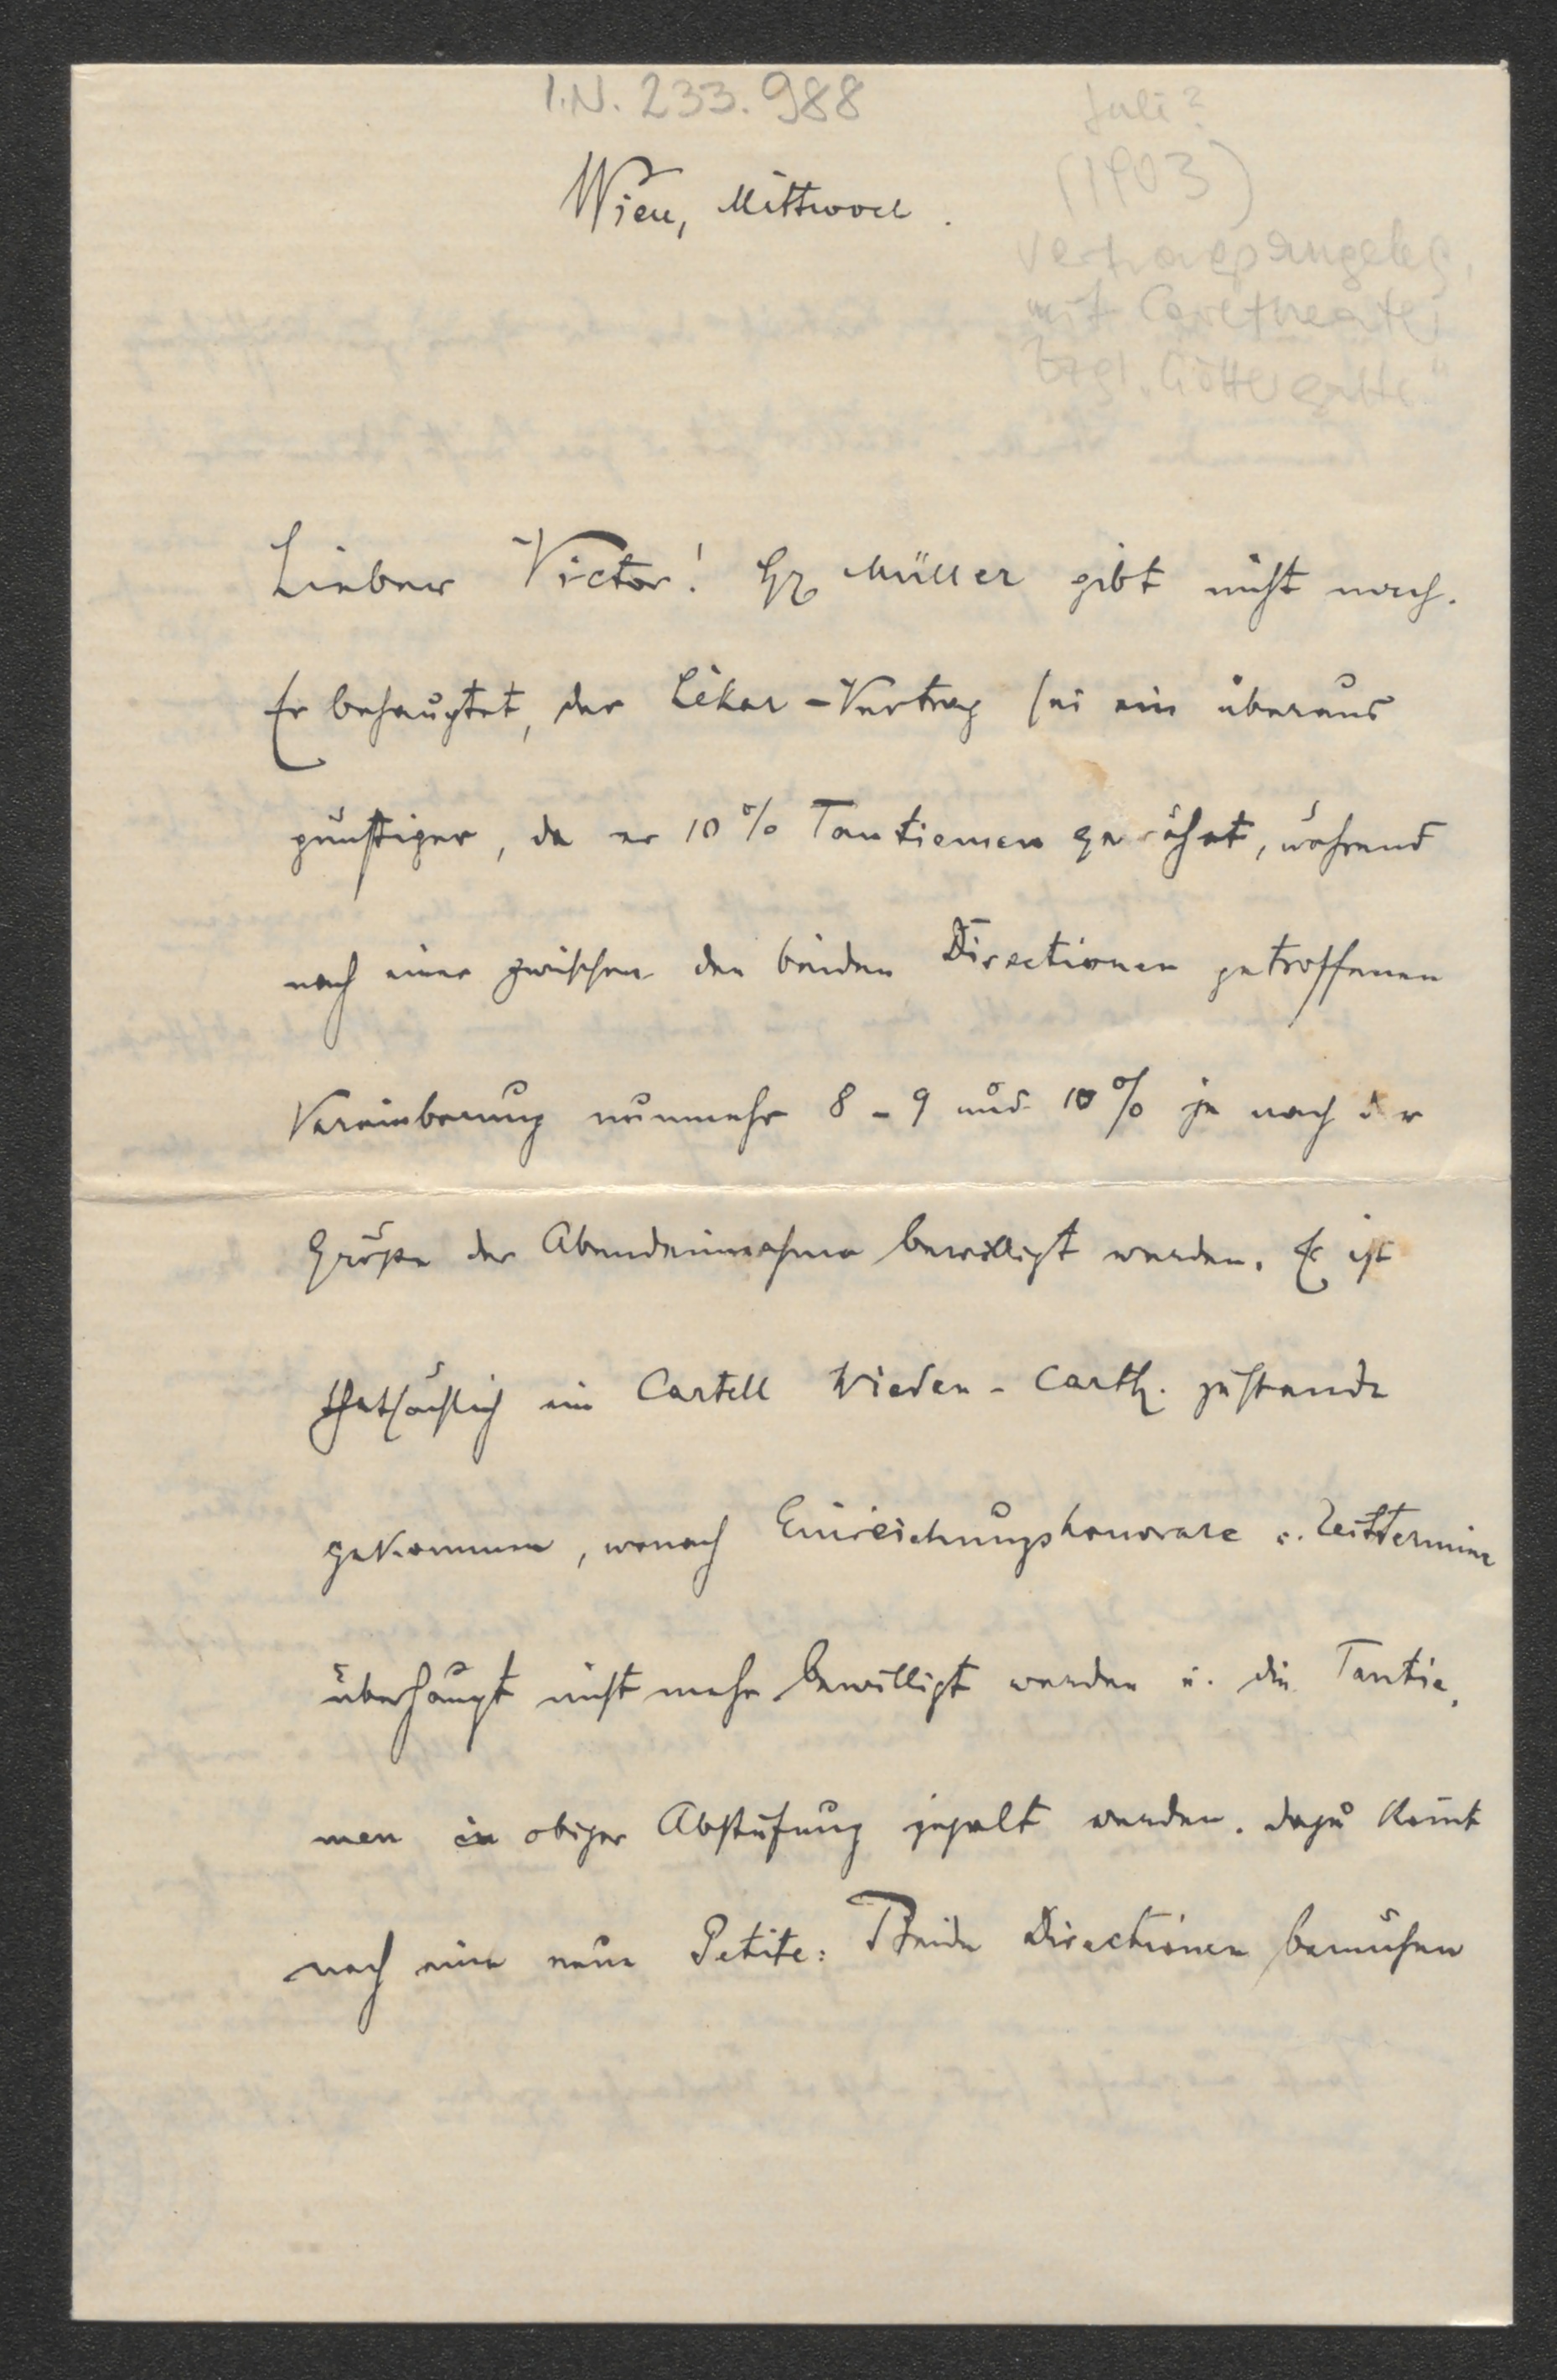 I.N. 233.988
Juli?
(1903)
Wien, Mittwoch.
Vertragsangeleg.
mit Carltheater
bzgl. „Göttergatte"
Lieber Victor! Hr Müller gibt nicht nach.
Er behauptet, der Léhar-Vertrag sei ein überaus
günstiger, da er 10% Tantiemen gewährt, während
nach einer zwischen den beiden Directionen getroffenen
Vereinbarung nunmehr 8-9 und 10% je nach der
Größe der Abendeinnahme bewilligt werden. Es ist
thatsächlich ein Cartell Wieden-Carlth. zustande
gekommen, wonach Einreichungshonorare u. Zeittermine
überhaupt nicht mehr bewilligt werden u. die Tantie-
men in obiger Abstufung gezalt werden. Dazu komt
noch eine neue Petite: Beide Directionen bemühen